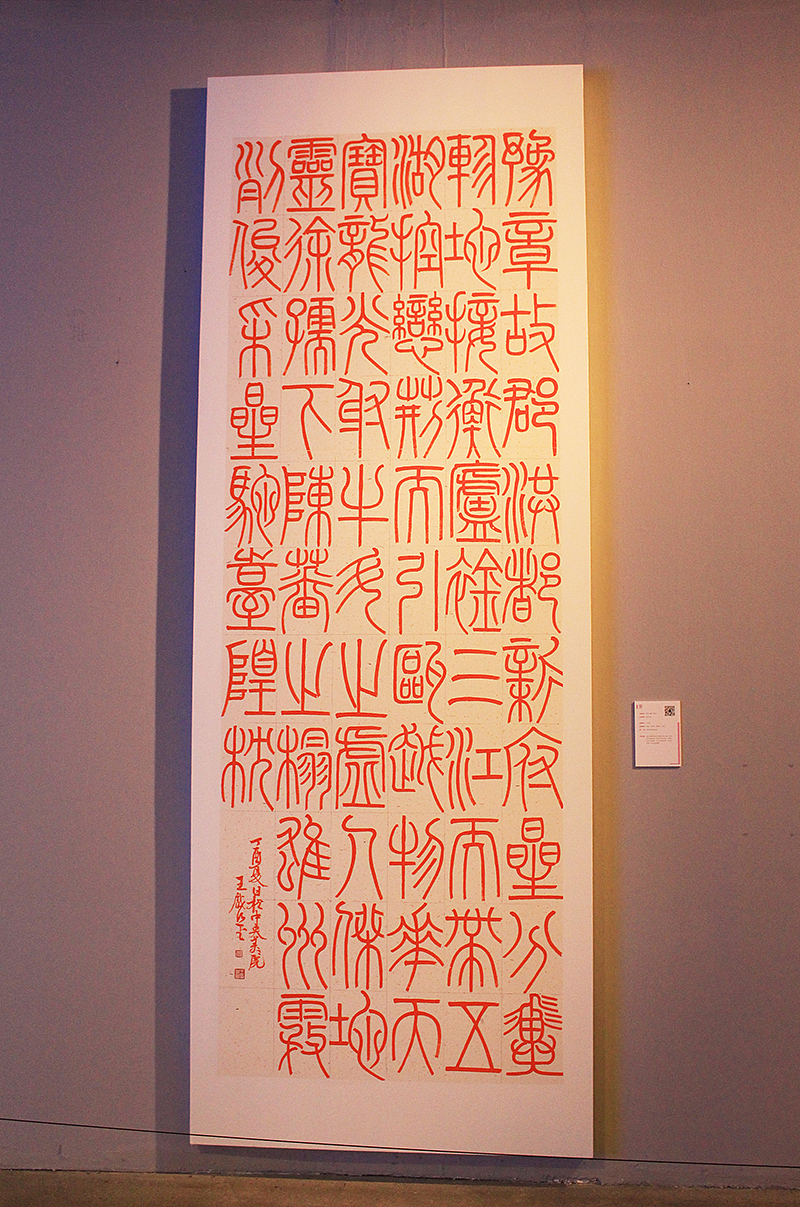 豫章故郡洪都新府星分翼
軫地接衡廬襟三江而帶五
湖控蠻荊而引甌越物華天
寶龍光射牛斗之虛人傑地
靈徐孺下陳蕃之榻雄州霧
列俊采星馳臺隍枕
丁酉夏日於中央美院
王